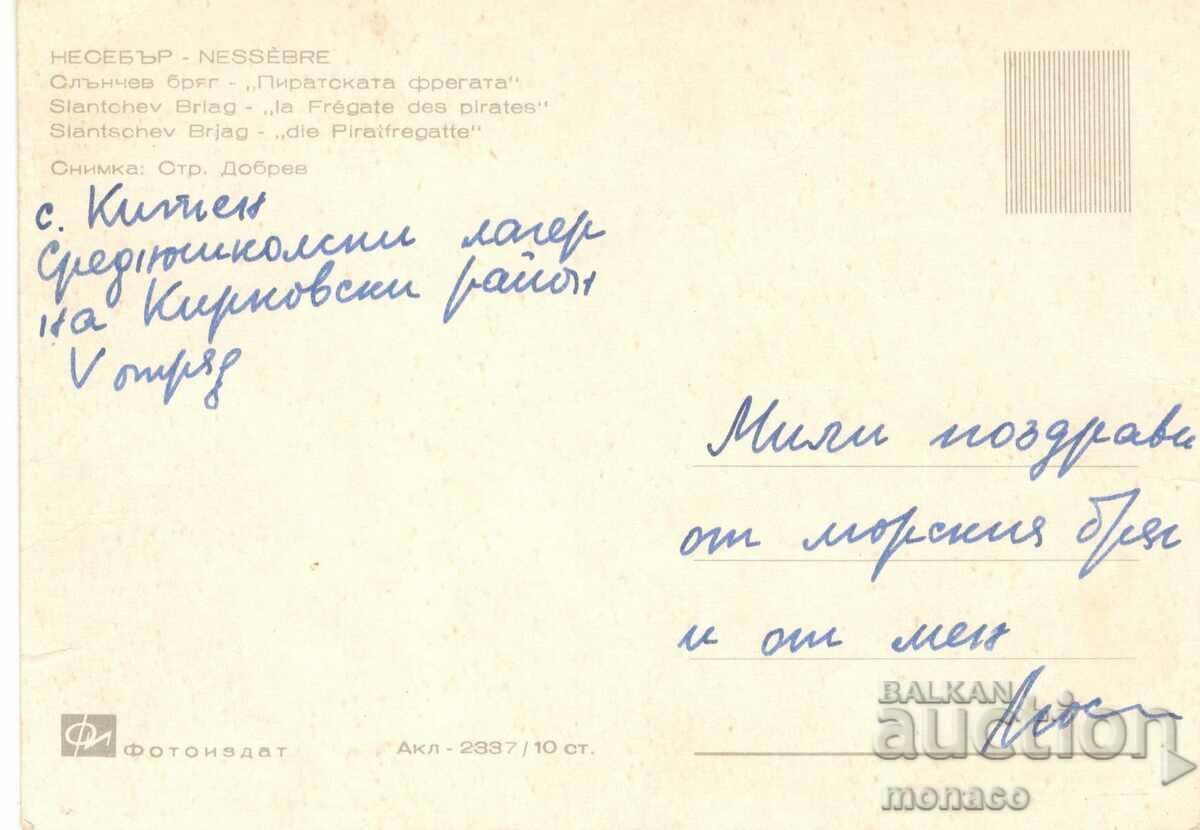 НЕСЕБЪР - NESSÈBRE
Слънчев бряг - „Пиратската фрегата“
Slantchev Briag - „la Frégate des pirates“
Slantschev Brjag - „die Piratfregatte“
Снимка: Стр. Добрев
с. Китен
Средношколски лагер
на Кирковски район
V отряд
Мили поздрави
от морския бряг
и от мен
ФИ Фотоиздат
Акл - 2337/10 ст.
BALKAN
auction
monaco